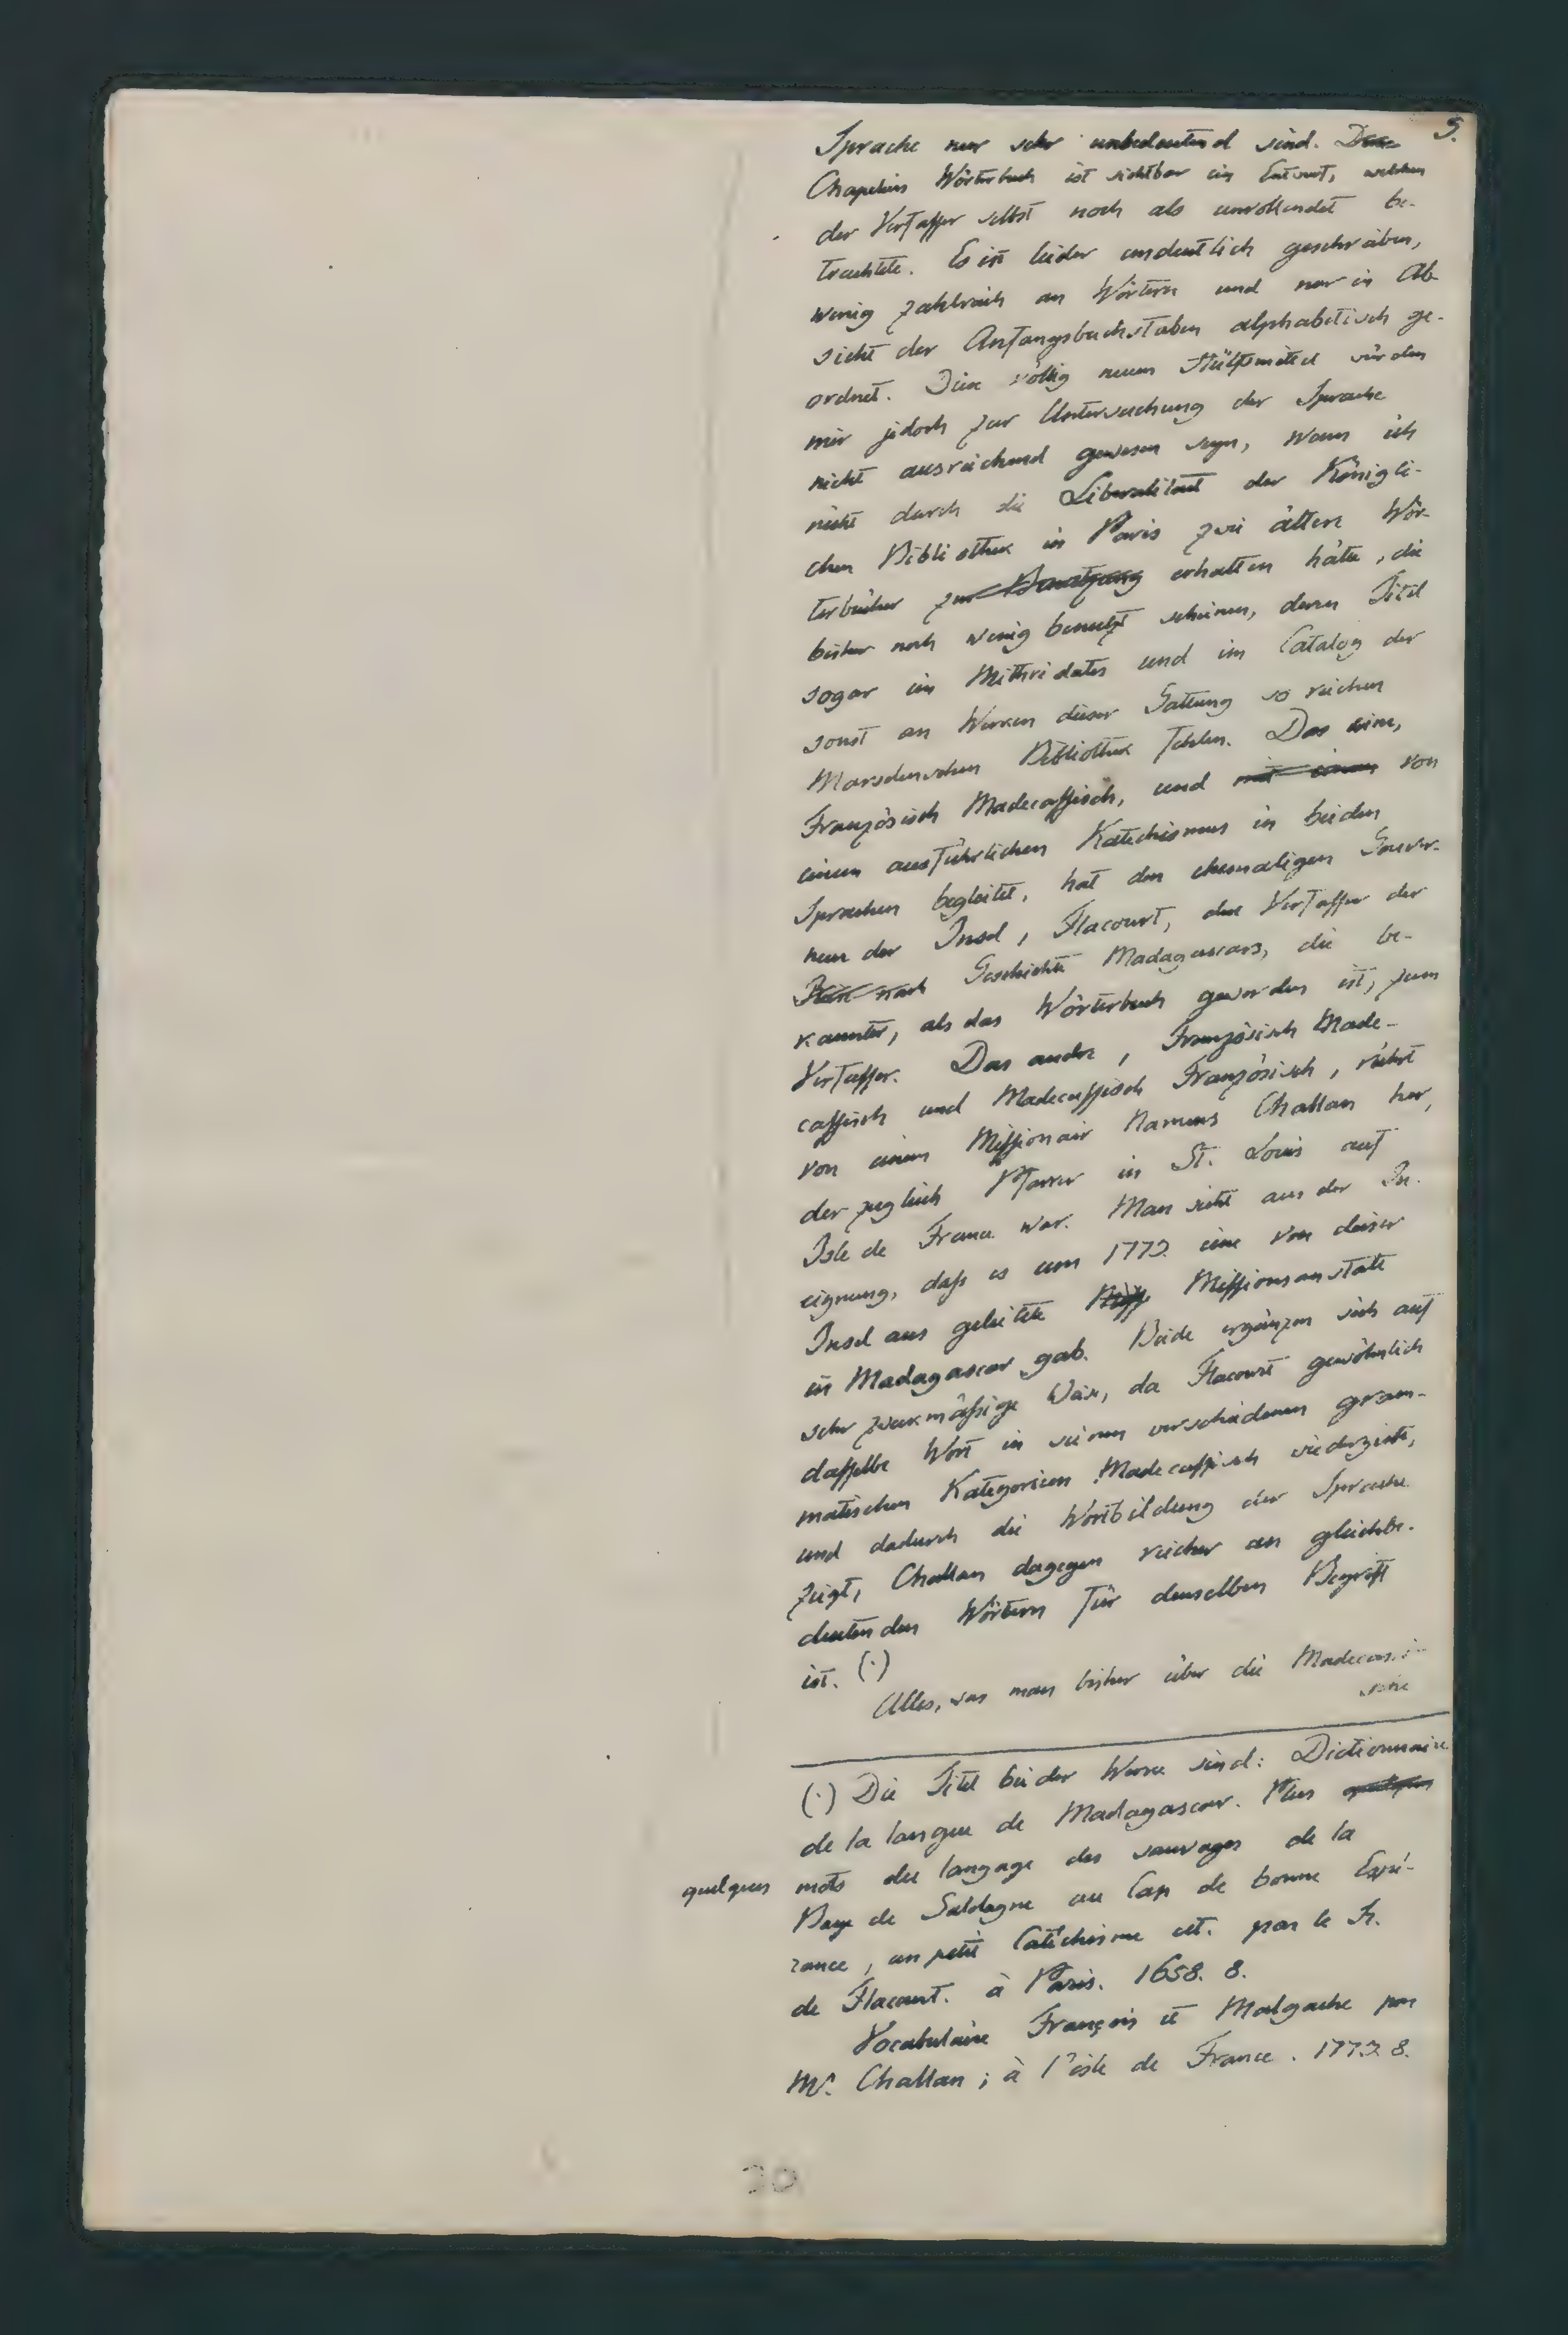 5.
Sprache nur sehr unbedeutend sind.
Chapeliers Wörterbuch ist sichtbar ein Entwurf, welchen
der Verfasser selbst noch als unvollendet be-
trachtete. Es ist leider undeutlich geschrieben,
wenig zahlreich an Wörtern und nur in Ab-
sicht der Anfangsbuchstaben alphabetisch ge-
ordnet. Diese völlig neuen Hülfsmittel würden
mir jedoch zur Untersuchung der Sprache
nicht ausreichend gewesen seyn, wenn ich
nicht durch die Liberalitaet der Königli-
chen Bibliothek in Paris zwei ältere Wör-
terbücher zur Benutzung erhalten hätte, die
bisher noch wenig benutzt scheinen, deren Titel
sogar im Mithridates und im Catalog der
sonst an Werken dieser Gattung so reichen
Marsdenschen Bibliothek fehlen. Das eine,
Französisch Madecassisch, und mit einem von
einem ausführlichen Katechismus in beiden
Sprachen begleitet, hat den ehemaligen Gouver-
neur der Insel, Flacourt, den Verfasser der
Geschichte Madagascars, die be-
kannter, als das Wörterbuch geworden ist, zum
Verfasser. Das andre, Französisch Made-
cassisch und Madecassisch Französisch, rührt
von einem Missionair Namens Challan her,
der zugleich Pfarrer in St. Louis auf
Isle de France war. Man sieht aus der Zu-
eignung, dass es um 1773. eine von dieser
Insel aus geleitete Miss Missionsanstalt
in Madagascar gab. Beide ergänzen sich auf
sehr zweckmässige Weise, da Flacourt gewöhnlich
dasselbe Wort in seinen verschiedenen gram-
matischen Kategorieen Madecassisch wiedergiebt,
und dadurch die Wortbildung der Sprache
zeigt, Challan dagegen reicher an gleichbe-
deutenden Wörtern für denselben Begriff
ist. (·)
Alles, was man bisher über die Madecassi-
sche
(·) Die Titel beider Werke sind: Dictionnaire
de la langue de Madagascar. Plus quelques
quelques mots du langage des sauvages de la
Baye de Saldagne au Cap de bonne Espé-
rance, un petit Catéchisme cet. par le Sr.
de Flacourt. à Paris. 1658. 8.
Vocabulaire François et Malgache par
Mr. Challan; à l'isle de France. 1773. 8.